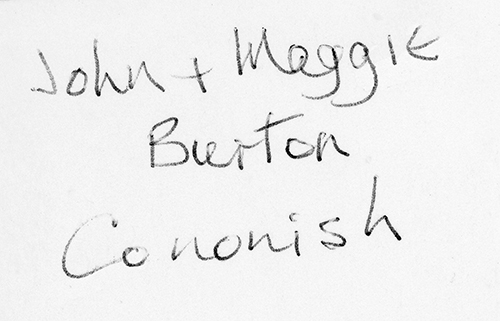 John + Maggie
Burton
Cononish